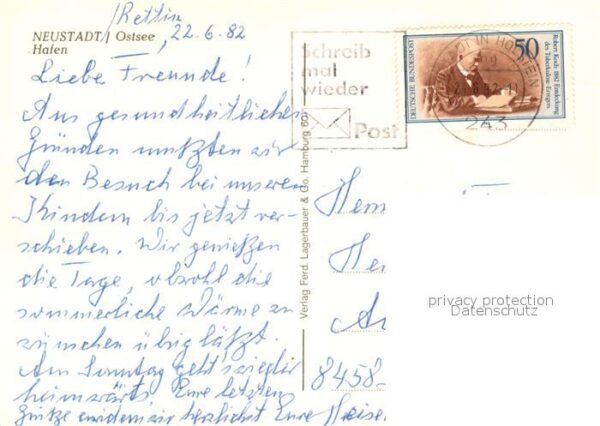 Rettin
NEUSTADT / Ostsee
Hafen
22.6.82
Liebe Freunde!
Aus gesundheitlichen
Gründen mußten wir
den Besuch bei unseren
Kindern bis jetzt ver-
schieben. Wir genießen
die Tage, obwohl die
sommerliche Wärme zu
wünschen übrig läßt.
Am Sonntag geht's wieder
heimwärts. Eure letzten
Grüße erwidern wir herzlichst Eure
Schreib
mal
wieder
Post
50
DEUTSCHE BUNDESPOST
Robert Koch: 1882 Entdeckung
des Tuberkulose-Erregers
IN HOLSTEIN
243
Verlag Ferd. Lagerbauer & Co. Hamburg 60
8458
privacy protection
Datenschutz